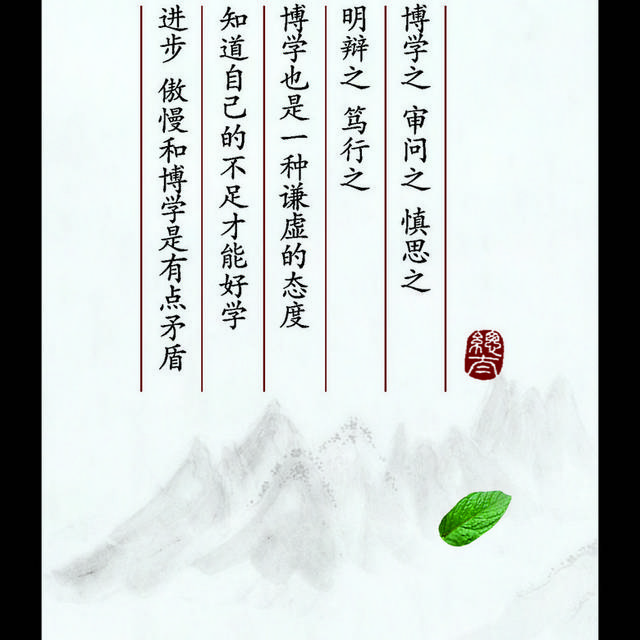 博学之 审问之 慎思之
明辩之 笃行之
博学也是一种谦虚的态度
知道自己的不足才能好学
进步 傲慢和博学是有点矛盾